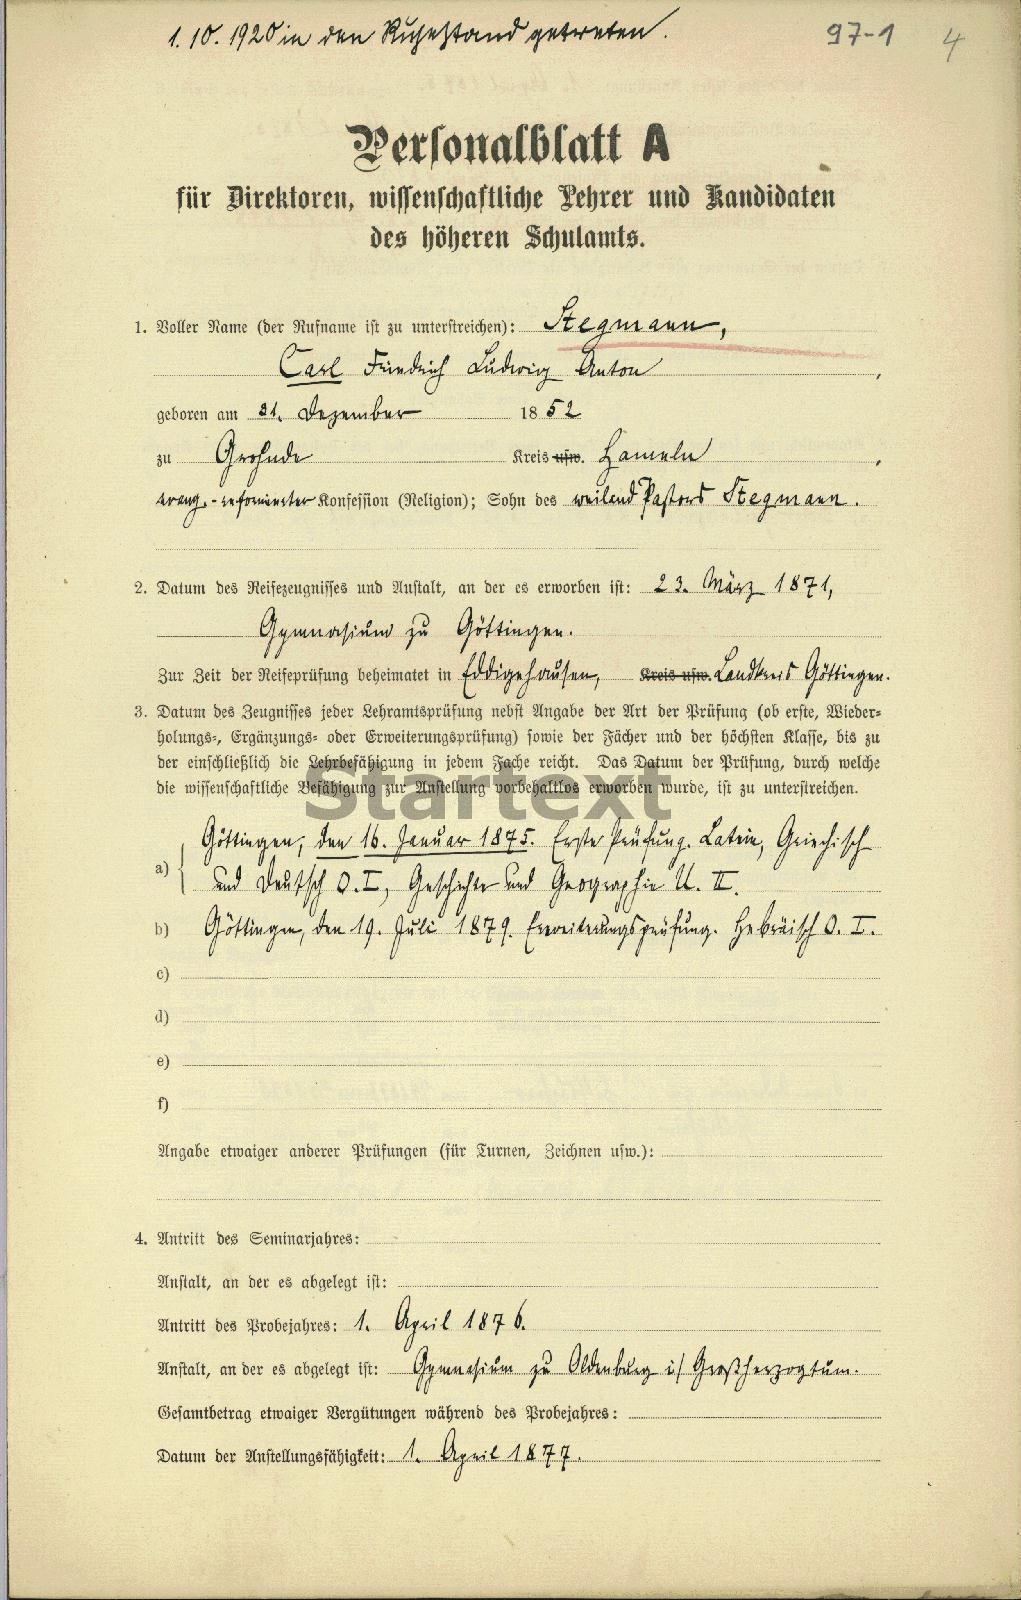 1. 10. 1920 in den Ruhestand getreten.
97-1 4
Personalblatt A
für Direktoren, wissenschaftliche Lehrer und Kandidaten
des höheren Schulamts.
1. Voller Name (der Rufname ist zu unterstreichen): Stegmann,
Carl Friedrich Ludwig Anton ,
geboren am 31. Dezember 1852
zu Grohnde Kreis usw. Hameln ,
evang.-reformierter Konfession (Religion); Sohn des weiland Pastors Stegmann.
2. Datum des Reifezeugnisses und Anstalt, an der es erworben ist: 23. März 1871,
Gymnasium zu Göttingen.
Zur Zeit der Reifeprüfung beheimatet in Eddigehausen, Kreis usw. Landkreis Göttingen.
3. Datum des Zeugnisses jeder Lehramtsprüfung nebst Angabe der Art der Prüfung (ob erste, Wieder-
holungs-, Ergänzungs- oder Erweiterungsprüfung) sowie der Fächer und der höchsten Klasse, bis zu
der einschließlich die Lehrbefähigung in jedem Fache reicht. Das Datum der Prüfung, durch welche
die wissenschaftliche Befähigung zur Anstellung vorbehaltlos erworben wurde, ist zu unterstreichen.
Startext
a) Göttingen, den 16. Januar 1875. Erste Prüfung. Latein, Griechisch
und Deutsch O. I, Geschichte und Geographie U. II.
b) Göttingen, den 19. Juli 1879. Erweiterungsprüfung. Hebräisch O. I.
c)
d)
e)
f)
Angabe etwaiger anderer Prüfungen (für Turnen, Zeichnen usw.):
4. Antritt des Seminarjahres:
Anstalt, an der es abgelegt ist:
Antritt des Probejahres: 1. April 1876.
Anstalt, an der es abgelegt ist: Gymnasium zu Oldenburg i/ Großherzogtum.
Gesamtbetrag etwaiger Vergütungen während des Probejahres:
Datum der Anstellungsfähigkeit: 1. April 1877.